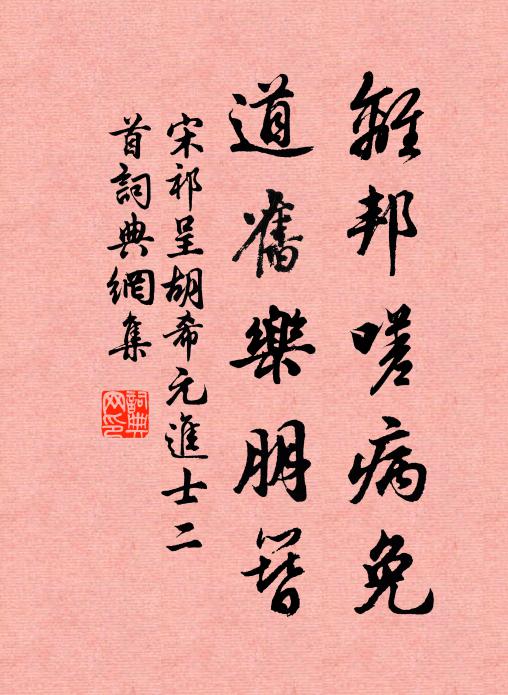 離邦嗟病免
道舊樂朋簪
宋祁呈胡希元進士二
首詞典網集
詞典网印